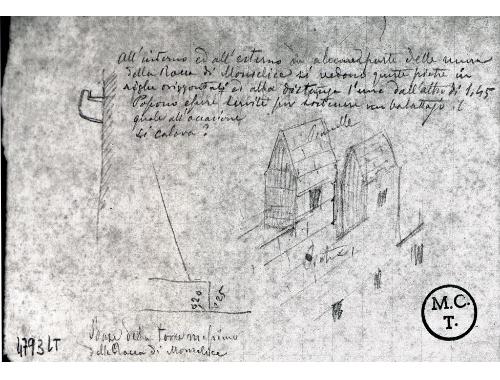 All'interno ed all'esterno in alcune parte delle mura
della Rocca di Monselice si vedono queste pietre in
righe orizzontali ed alla distanza l'una dall'altra di 1,45
Possono essere servite per sostenere un ballatojo il
quale all'occasione
si calava?
Pietre
0,20
0,25
Base della torre
della Rocca di Monselice
4793 LT
M.C.
T.